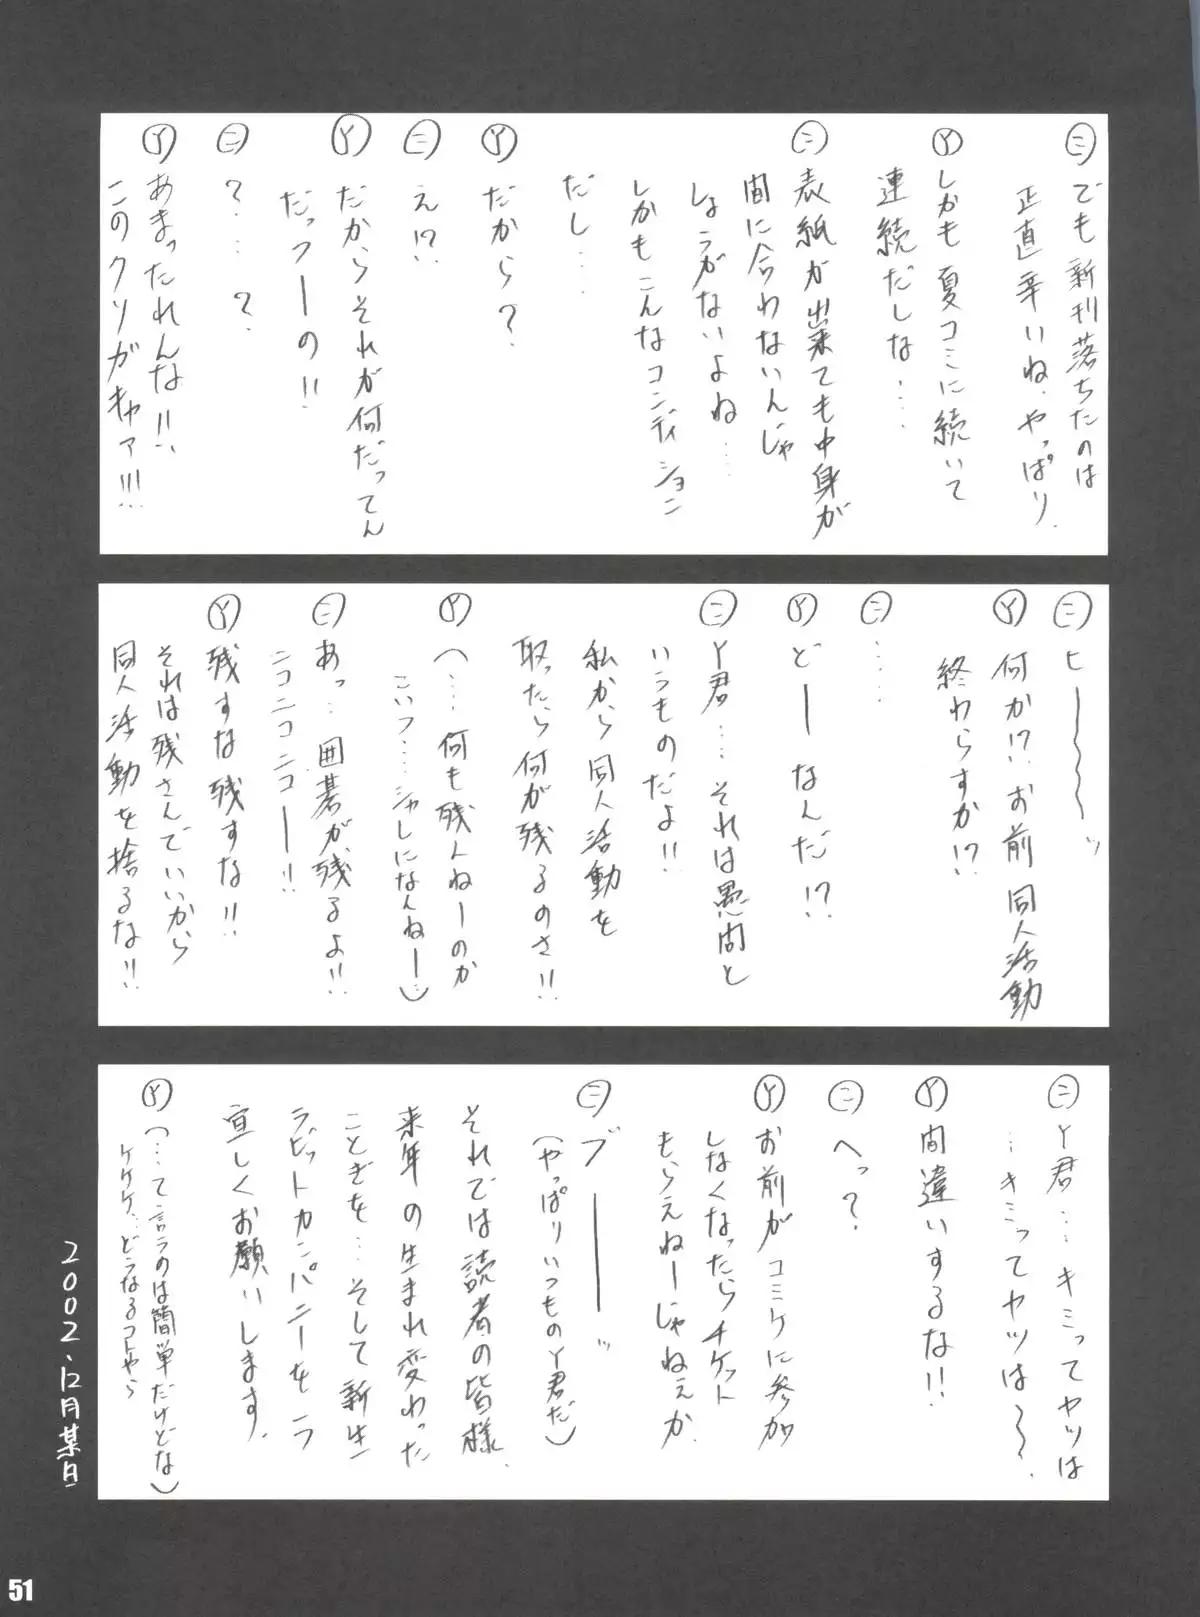 ㋥でも新刊落ちたのは
正直辛いね、やっぱり。
Ⓨしかも夏コミに続いて
連続だしな‥‥
㋥表紙が出来ても中身が
間に合わないんじゃ
しょうがないよね‥‥
しかもこんなコンディション
だし‥‥
Ⓨだから?
㋥え!?
Ⓨだからそれが何だってん
だっつーの!!
㋥?‥‥?
Ⓨあまったれんな!!
このクソガキャァ!!!
㋥ヒー〜〜〜ッ
Ⓨ何か!?お前同人活動
終わらすか!?
㋥‥‥
Ⓨどーなんだ!?
㋥Y君‥‥それは愚問と
いうものだよ!!
私から同人活動を
取ったら何が残るのさ!!
Ⓨ(‥‥何も残んねーのか
こいつ‥‥シャレになんねー‥)
㋥あっ‥囲碁が残るよ!!
ニコニコニコー!!
Ⓨ残すな残すな!!
それは残さんでいいから
同人活動を捨るな!!
㋥Y君‥‥キミってヤツは
‥キミってヤツは〜〜。
Ⓨ間違いするな!!
㋥へっ?
Ⓨお前がコミケに参加
しなくなったらチケット
もらえねーじゃねぇか。
㋥ブーーーッ
(やっぱりいつものY君だ)
それでは読者の皆様、
来年の生まれ変わった
ことぎを‥そして新生
ラビットカンパニーをヨ
宜しくお願いします。
Ⓨ(‥‥て言うのは簡単だけどな)
ケケケ‥どうなるコトやら
2002、12月某日
51